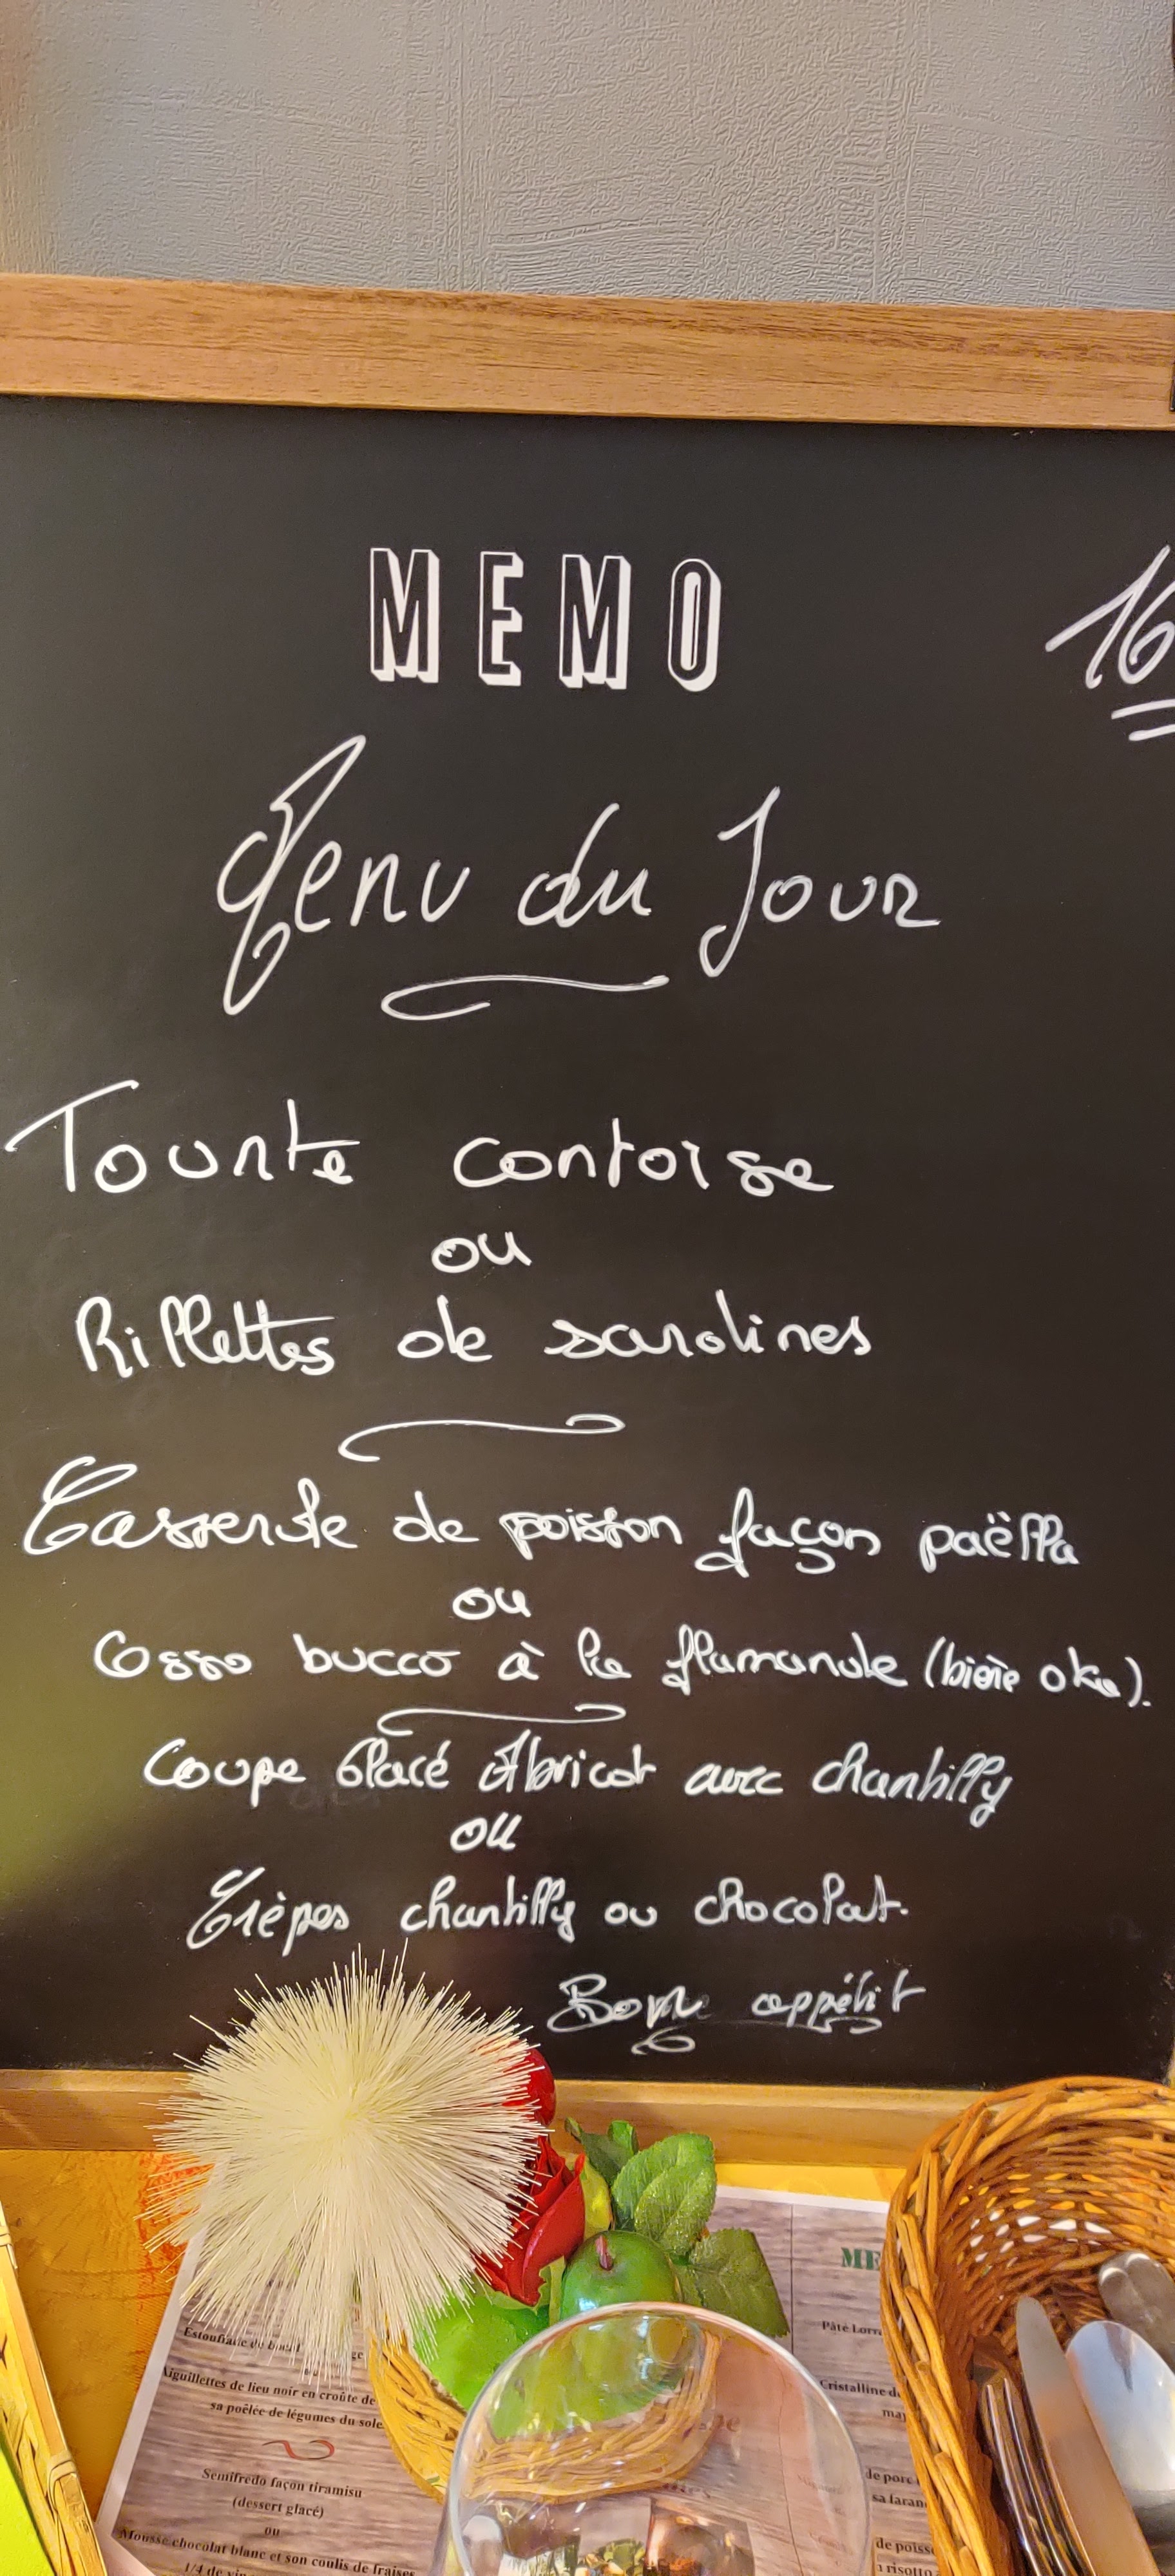 MEMO
16
Menu du Jour
Tourte comtoise
ou
Rillettes de sardines
Casserole de poisson façon paëlla
ou
Osso bucco à la flamande (bière oka).
Coupe Glacé Abricot avec chantilly
ou
Crèpes chantilly ou chocolat.
Bon appétit
Estoufiade de
Aiguillettes de lieu noir en croûte de
sa poêlée de légumes du sole
Semifredo façon tiramisu
(dessert glacé)
ou
Mousse chocolat blanc et son coulis de fraises
1/4 de vin
ME
Pâté Lorr
Cristalline d
ma
de porc
sa faran
de poiss
risotto